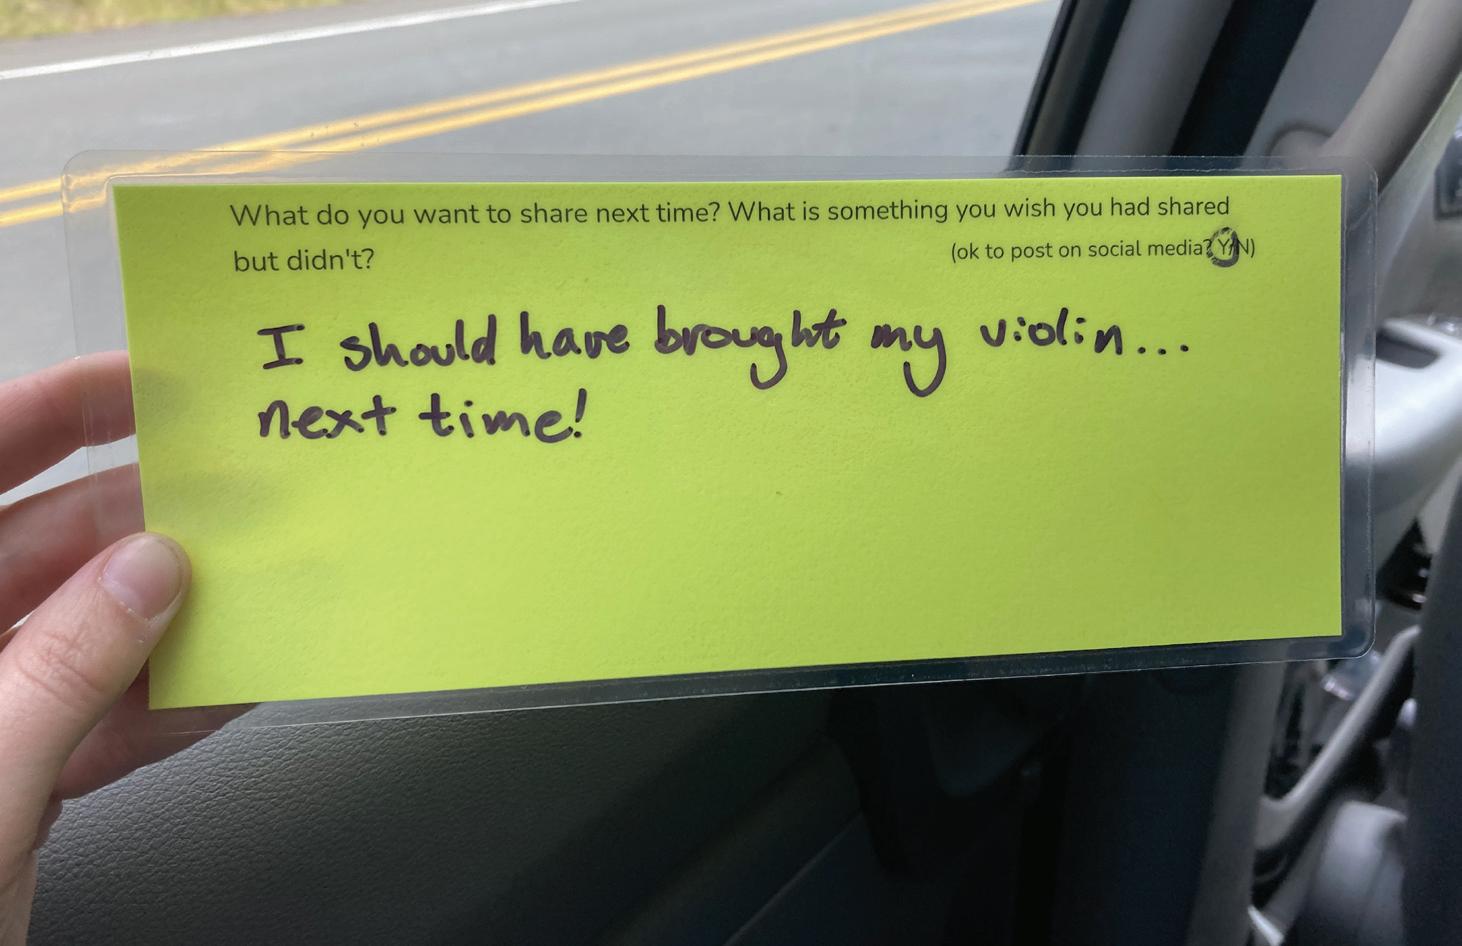 What do you want to share next time? What is something you wish you had shared
but didn't?
(ok to post on social media? Y/N)
I should have brought my violin...
next time!